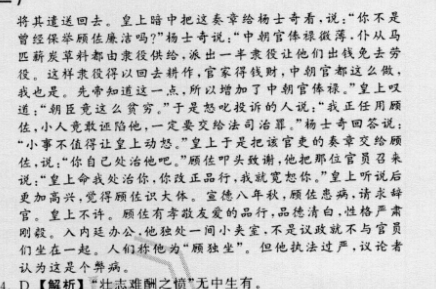 将其遣送回去。皇上暗中把这奏章给杨士奇看,说:“你不是
曾经保举顾佐廉洁吗?”杨士奇说:“中朝官俸禄微薄,仆从马
匹薪炭草料都由隶役供给,派出一半隶役让他们出钱免去劳
役。这样隶役得以回去耕作,官家得钱财,中朝官都这么做,
我也是。先帝知道这一点,所以增加了中朝官俸禄。”皇上叹
道:“朝臣竟这么贫穷。”于是怒叱投诉的人说:“我正任用顾
佐,小人竟敢诬陷他,一定要交给法司治罪。”杨士奇回答说:
“小事不值得让皇上动怒。”皇上于是把该官吏的奏章交给顾
佐,说:“你自己处治他吧。”顾佐叩头致谢,他把那位官员召来
说:“皇上命我处治你,你改正品行,我就宽恕你。”皇上听说后
更加高兴,觉得顾佐识大体。宣德八年秋,顾佐患病,请求辞
官。皇上不许。顾佐有孝敬友爱的品行,品德清白,性格严肃
刚毅。入内廷办公,他独处一间小夹室,不是议政就不与官员
们坐在一起。人们称他为“顾独坐”。但他执法过严,议论者
认为这是个弊病。
4. D 【解析】“壮志难酬之愤”无中生有。